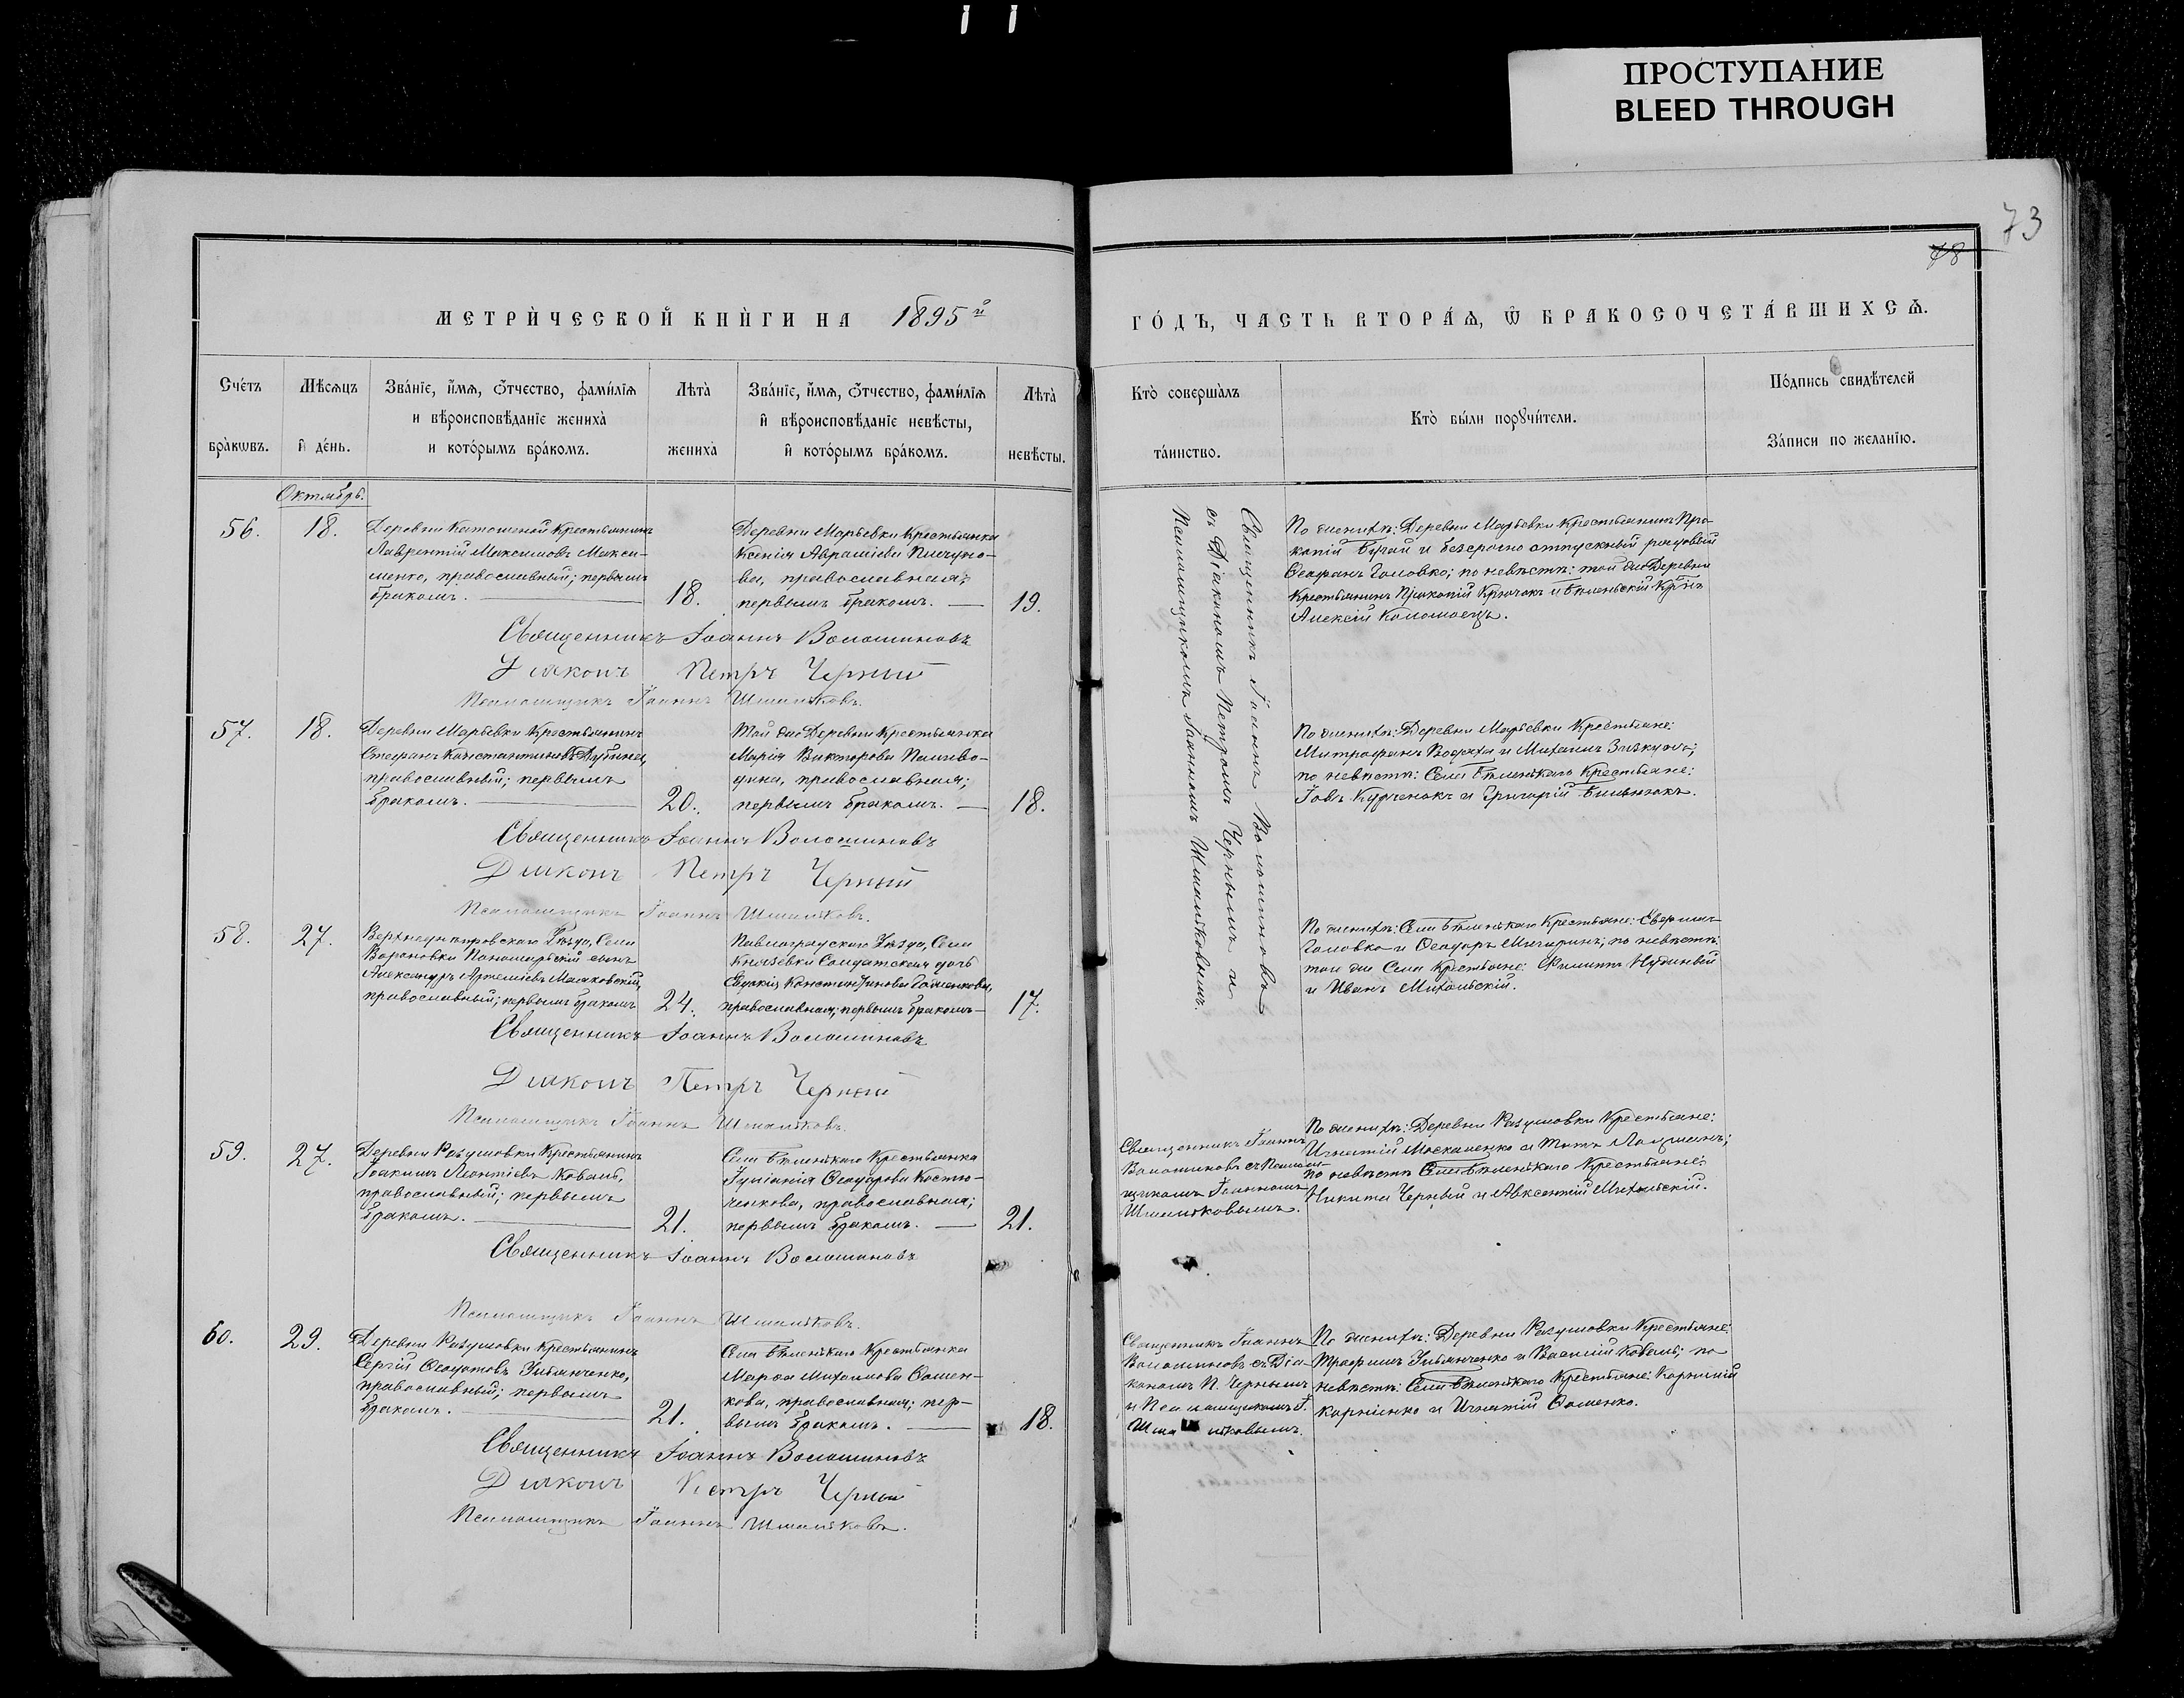 ПРОСТУПАНИЕ
BLEED THROUGH
73
78
МЕТРИ́ЧЕСКОЙ КНИ́ГИ НА 1895й
ГО́ДЪ, ЧАСТЬ ВТОРА́Ѧ, Ѿ БРАКОСОЧЕТА́ВШИХСѦ.
Сче́тъ бра́кѡвъ.
Мѣсѧцъ и҆ де́нь.
Зва́нїе, и҆́мѧ, ѻ҆́тчество, фами́лїѧ
и вѣроисповѣ́данїе жениха̀
и кото́рымъ бра́комъ.
Лѣта̀ жениха̀
Зва́нїе, и҆́мѧ, ѻ҆́тчество, фами́лїѧ
и҆ вѣроисповѣ́данїе невѣ́сты,
и҆ кото́рымъ бра́комъ.
Лѣта̀ невѣ́сты.
Кто̀ соверша̀лъ та́инство.
Кто̀ бы́ли порꙋчи́тели.
По́дпись свидѣ́телей
За́писи по жела́нїю.
Октябрь.
56.
18.
Деревни Крестьянинъ
Лаврентій Максимовъ Макси-
менко, православный; первымъ
бракомъ.
18.
Деревни Марьевки Крестьянка
Ксенія Авраміева Пичуно-
ва, православная;
первымъ бракомъ.
19.
Священникъ Іоаннъ Волошиновъ
съ Діакономъ Петромъ Чернымъ и
Псаломщикомъ Іоанномъ
По женихѣ: Деревни Марьевки Крестьянинъ Про-
копій Бугай и безсрочно отпускный рядовый
Стефанъ Головко; по невѣстѣ: той же Деревни
Крестьянинъ Прокопій Крючокъ и Бѣленьскій Кр-нъ
Алексій Коломоецъ.
Священникъ Іоаннъ Волошиновъ
Діаконъ Петръ Черный
Псаломщикъ Іоаннъ
57.
18.
Деревни Марьевки Крестьянинъ
Стефанъ Константиновъ Дубина,
православный; первымъ
бракомъ.
20.
Той же Деревни Крестьянка
Марія Викторова Паливо-
дина, православная;
первымъ бракомъ.
18.
По женихѣ: Деревни Марьевки Крестьяне:
Митрофанъ и Михаилъ
по невѣстѣ: Села Бѣленькаго Крестьяне:
Іовъ Кудченокъ и Григорій
Священникъ Іоаннъ Волошиновъ
Діаконъ Петръ Черный
Псаломщикъ Іоаннъ
58.
27.
Верхнеднѣпровскаго Уѣзда, Села
Вороновки Пономарьскій сынъ
Александръ Артеміевъ Маяковскій,
православный; первымъ бракомъ
24.
Павлоградскаго Уѣзда, Села
Князевки Солдатская дочь
Евдокія Константинова
православная; первымъ бракомъ
17.
По женихѣ: Села Бѣленькаго Крестьяне:
Головко и Ѳеодоръ Мичуринъ; по невѣстѣ:
той же Села Крестьяне: Филиппъ Нудиный
и Иванъ Михальскій.
Священникъ Іоаннъ Волошиновъ
Діаконъ Петръ Черный
Псаломщикъ Іоаннъ
59.
27.
Деревни Разумовки Крестьянинъ
Іоакимъ Леонтіевъ Коваль,
православный; первымъ
бракомъ.
21.
Села Бѣленькаго Крестьянка
Іуліанія Ѳеодорова Костю-
ченкова, православная;
первымъ бракомъ.
21.
Священникъ Іоаннъ
Волошиновъ съ Псалом-
щикомъ Іоанномъ
По женихѣ: Деревни Разумовки Крестьяне:
Игнатій Москаленко и Титъ Лоцманъ;
по невѣстѣ Села Бѣленькаго Крестьяне:
Никита Черный и Авксентій Михальскій.
Священникъ Іоаннъ Волошиновъ
Псаломщикъ Іоаннъ
60.
29.
Деревни Разумовки Крестьянинъ
Сергій Ѳедотовъ
православный; первымъ
бракомъ.
21.
Села Бѣленькаго Крестьянка
Марѳа Михаилова Ѳомен-
кова, православная; пер-
вымъ бракомъ.
18.
Священникъ Іоаннъ
Волошиновъ съ Діа-
кономъ П. Чернымъ
и Псаломщикомъ І.
По женихѣ: Деревни Разумовки Крестьяне:
Трофимъ и Василій Коваль; по
невѣстѣ: Села Бѣленькаго Крестьяне: Корнилій
Корніенко и Игнатій Ѳоменко.
Священникъ Іоаннъ Волошиновъ
Діаконъ Петръ Черный
Псаломщикъ Іоаннъ